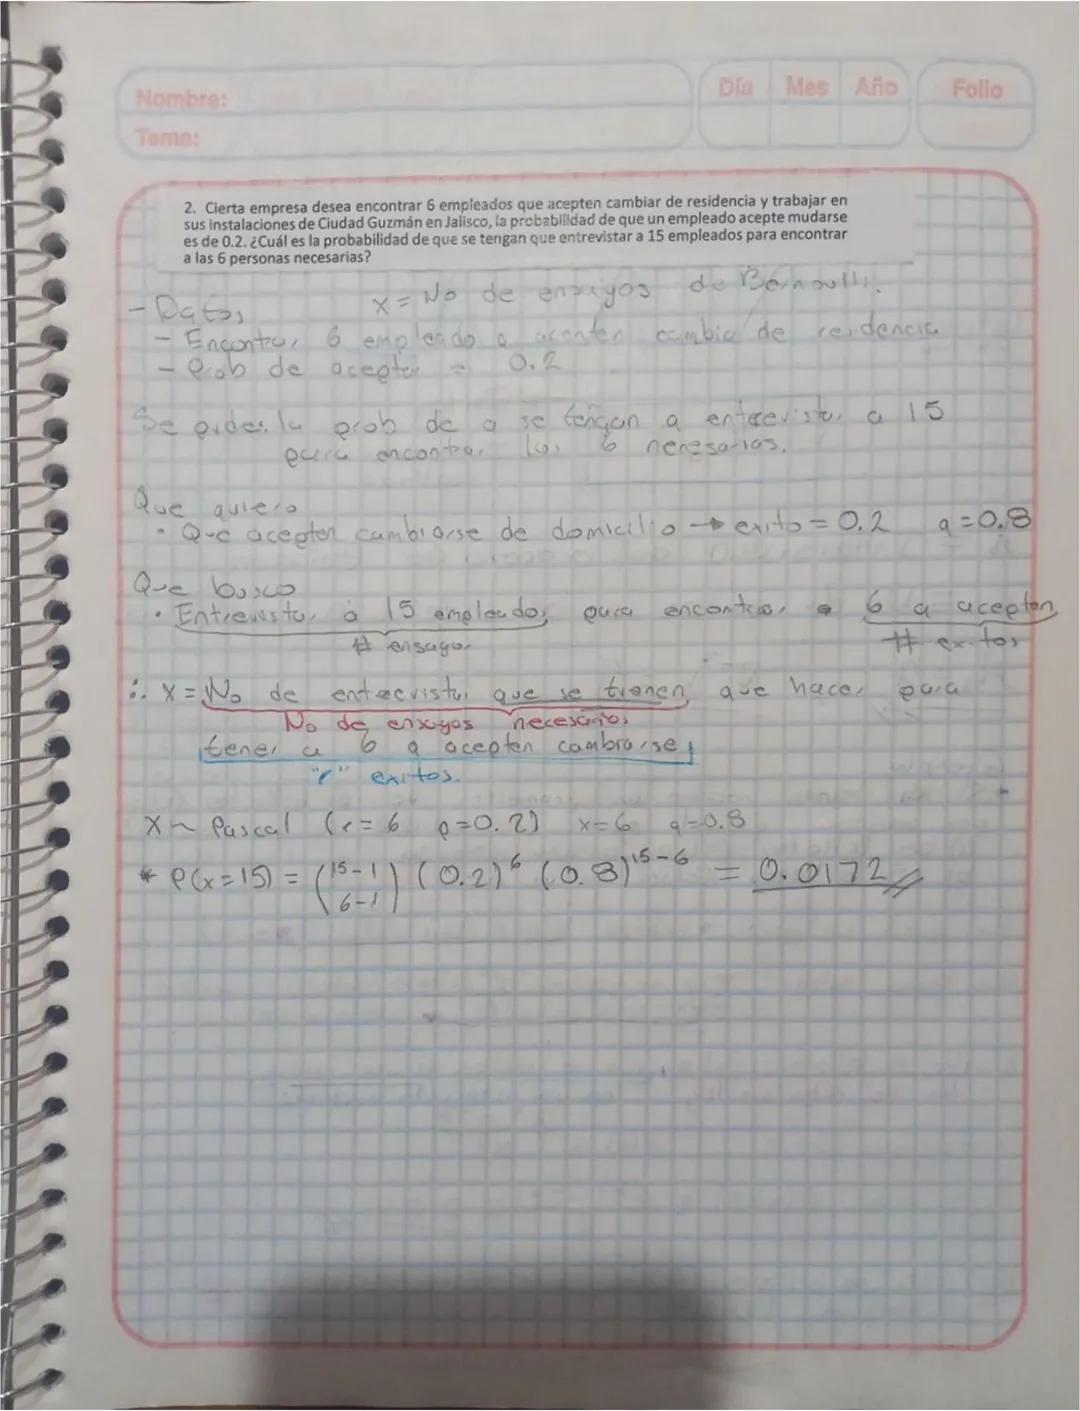 Nombre:
Día Mes Año Folio
Tema:
2. Cierta empresa desea encontrar 6 empleados que acepten cambiar de residencia y trabajar en
sus instalaciones de Ciudad Guzmán en Jalisco, la probabilidad de que un empleado acepte mudarse
es de 0.2. ¿Cuál es la probabilidad de que se tengan que entrevistar a 15 empleados para encontrar
a las 6 personas necesarias?
- Datos x = No de ensayos de Bernoulli.
- Encontrar 6 empleado q acepten cambio de residencia
- Prob de aceptar = 0.2
Se pide: la prob de q se tengan a entrevistar a 15
para encontrar los 6 necesarios.
Que quiero
• Que acepten cambiarse de domicilio → exito = 0.2 q = 0.8
Que busco
• Entrevistar a 15 empleados para encontrar a 6 q acepten
# ensayos # exitos
∴ x = No de entrevistas que se tienen que hacer para
No de ensayos necesarios
tener a 6 q acepten cambiarse
"r" exitos.
X ~ Pascal (r = 6 p = 0.2) x = 6 q = 0.8
* P(x = 15) = (15-1 6-1) (0.2)^6 (0.8)^15-6 = 0.0172